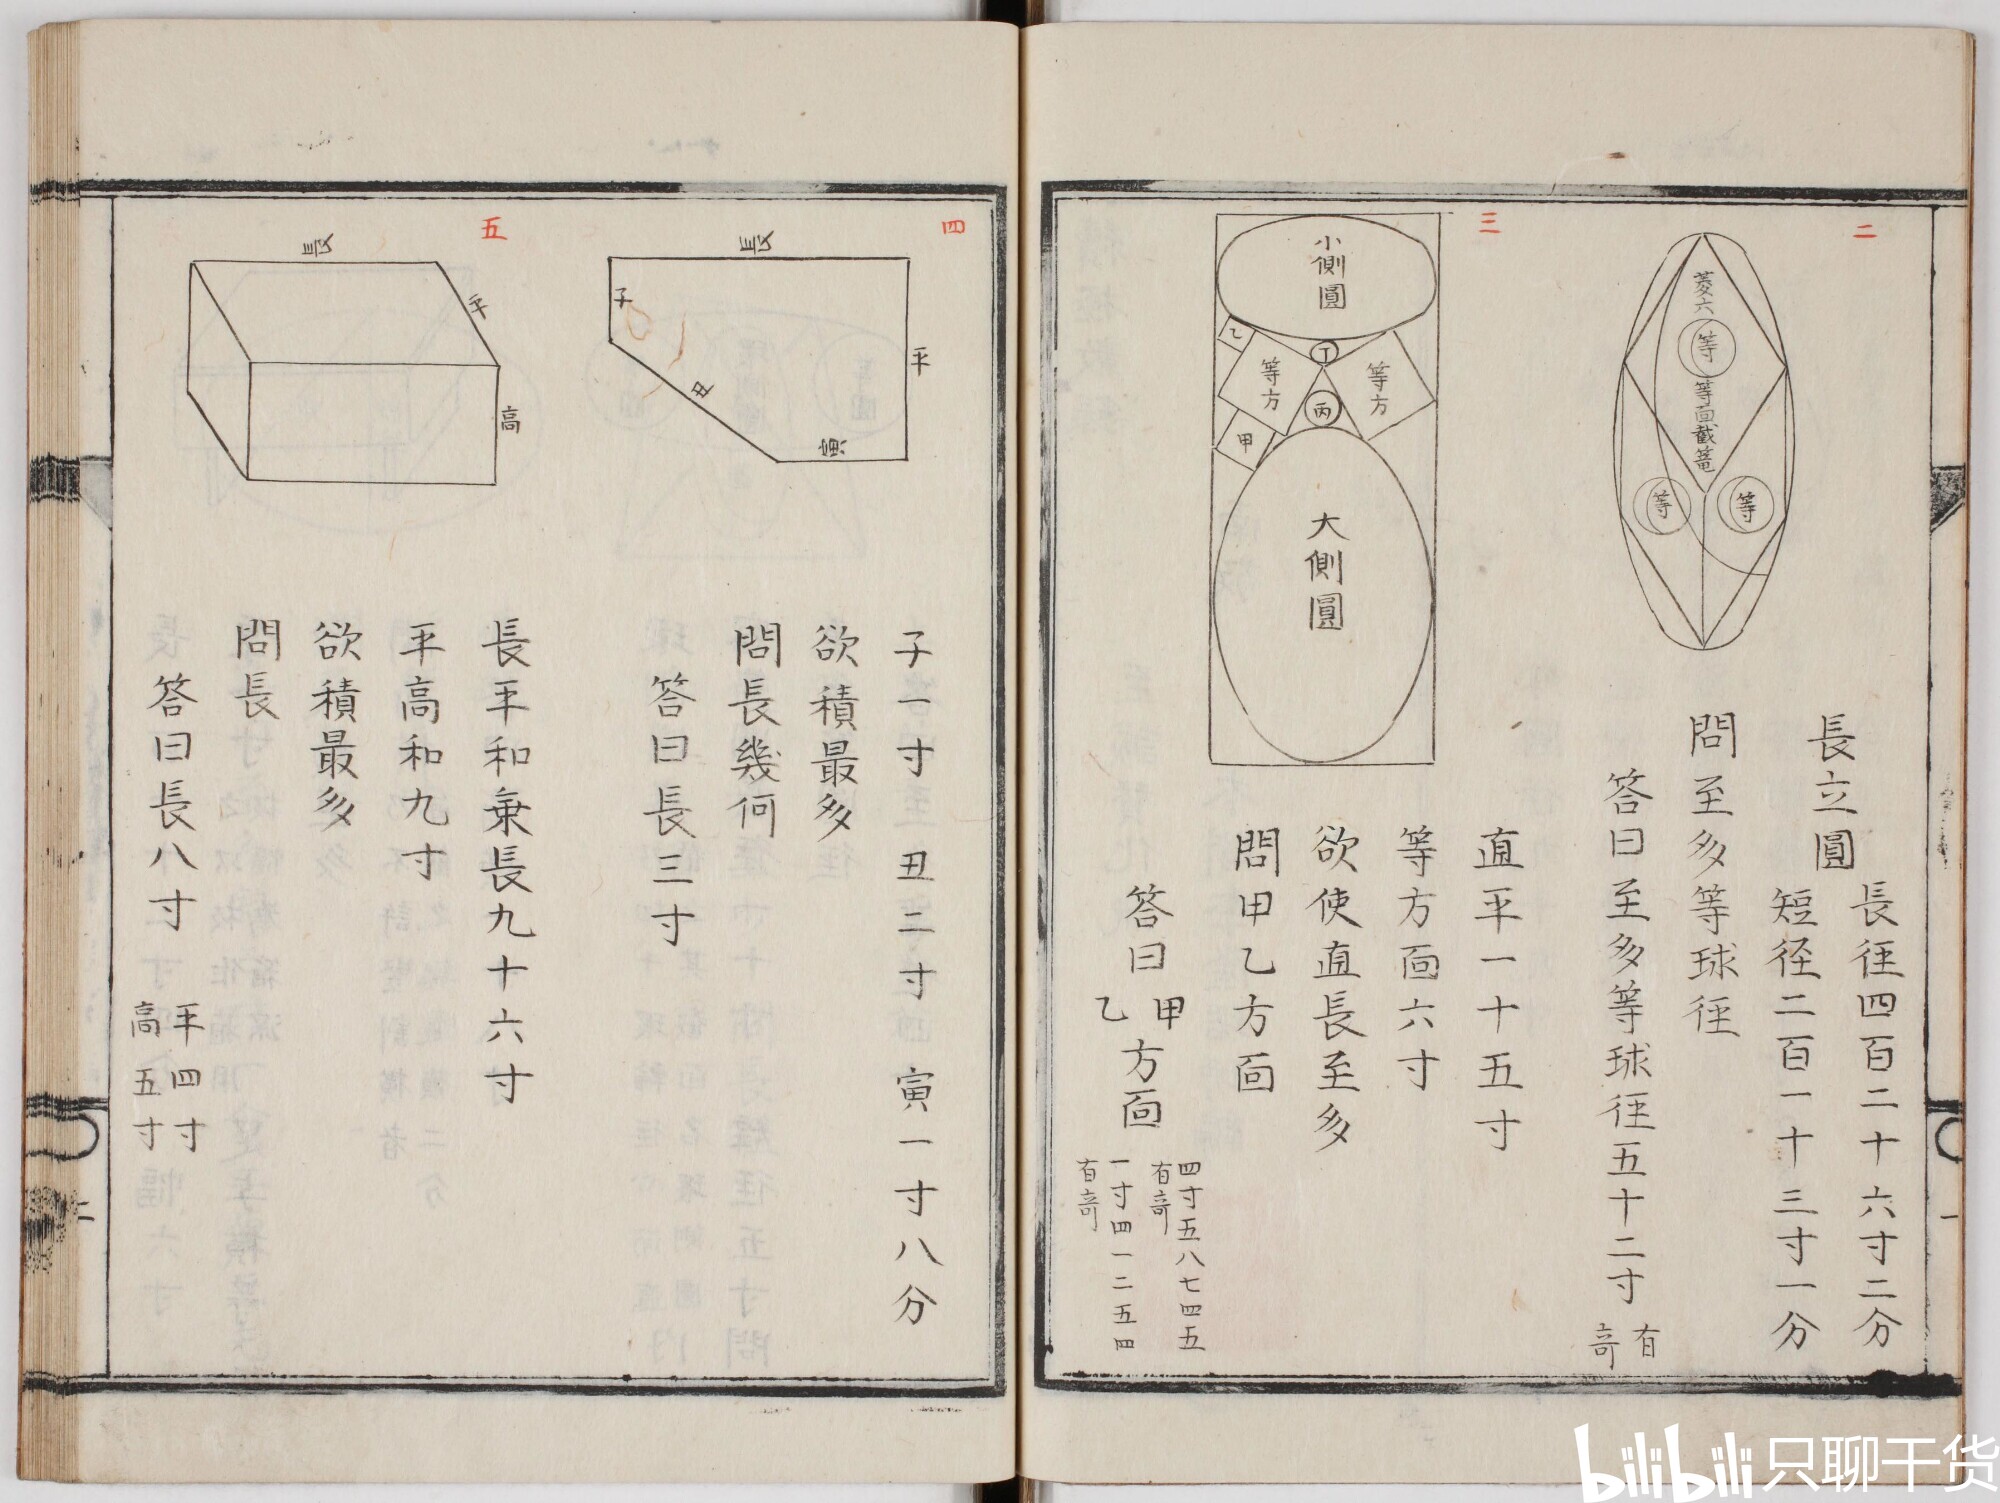 二
菱六
等
等面截篭
等
等
長立圓
長径四百二十六寸二分
短径二百一十三寸一分
問至多等球径
答曰至多等球径五十二寸
有
奇
三
小側圓
乙
丁
等方
等方
丙
甲
大側圓
直平一十五寸
等方面六寸
欲使直長至多
問甲乙方面
答曰
甲
乙
方面
四寸五八七四五
有奇
一寸四一二五四
有奇
四
長
子
平
丑
寅
子一寸丑二寸寅一寸八分
欲積最多
問長幾何
答曰長三寸
五
長
平
高
長平和乗長九十六寸
平高和九寸
欲積最多
問長
答曰長八寸
平四寸
高五寸
一
二
bilibili 只聊干货